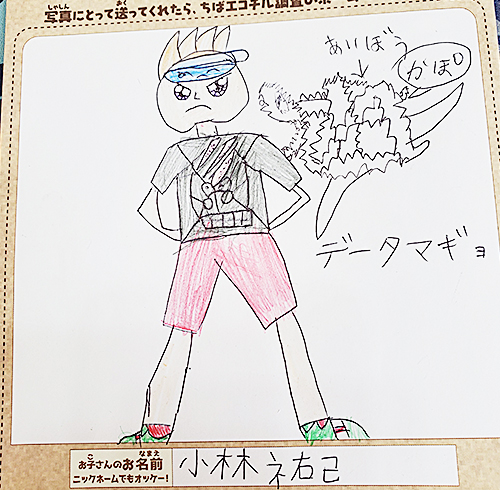 写真にとって送ってくれたら、ちばエコチル調査
しゃしん
おく
あいぼう
かぽ
データマギョ
お子さんのお名前
こ
なまえ
ニックネームでもオッケー!
小林 祐己